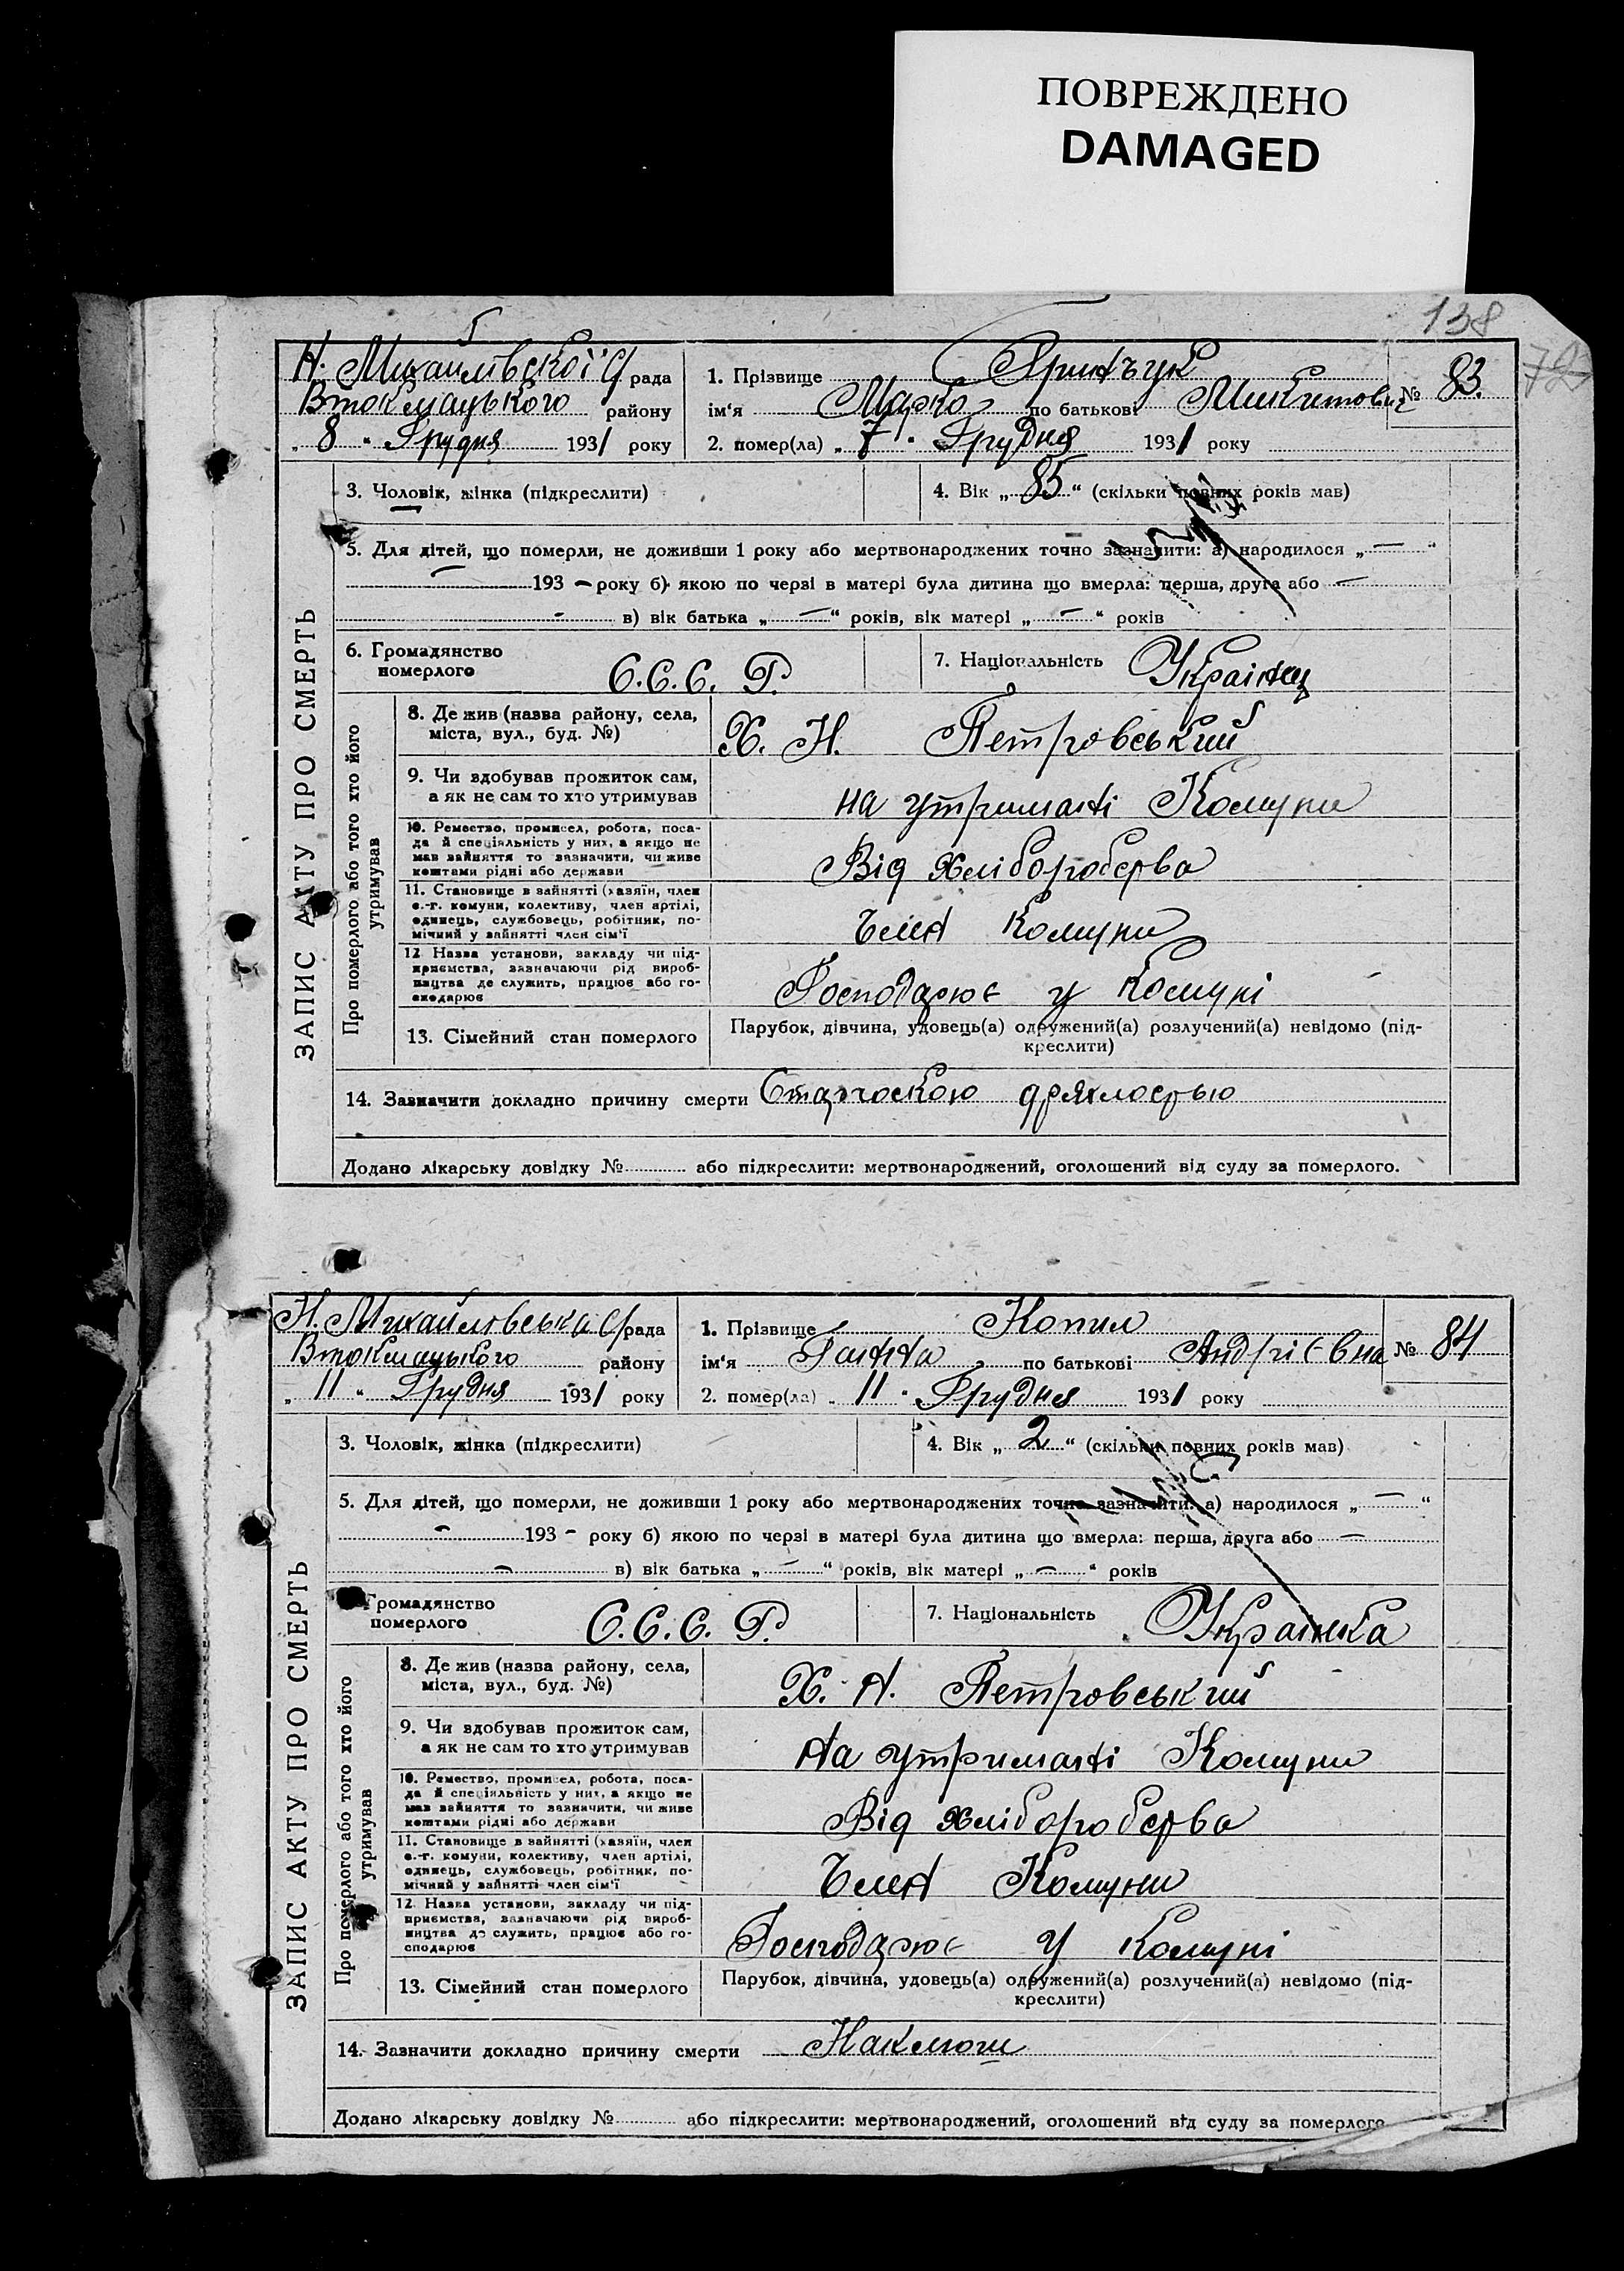 ПОВРЕЖДЕНО
DAMAGED
138
72
Н. Михайлівської с/рада
Втокмацького району
„ 8 “ Грудня 1931 року
1. Прізвище Гринчук
ім‘я Марко по батькові Микитович
№ 83.
2. помер(ла) „ 7 “ Грудня 1931 року
ЗАПИС АКТУ ПРО СМЕРТЬ
3. Чоловік, жінка (підкреслити)
4. Вік „ 85 “ (скільки повних років мав)
5. Для дітей, що померли, не доживши 1 року або мертвонароджених точно зазначити: а) народилося „ — “
— 193 — року б) якою по черзі в матері була дитина що вмерла: перша, друга або —
— в) вік батька „ — “ років, вік матері „ — “ років
6. Громадянство
померлого С.С.С. Р.
7. Національність Українец
Про померлого або того хто його
утримував
8. Де жив (назва району, села,
міста, вул., буд. №)
Х. Н. Петровський
9. Чи здобував прожиток сам,
а як не сам то хто утримував
на утриманні Комуни
10. Ремество, промисел, робота, поса-
да й спеціяльність у них, а якщо не
мав заняття то зазначити, чи живе
коштами рідні або держави
Від хліборобства
11. Становище в зайнятті (хазяїн, член
с.-г. комуни, колективу, член артілі,
одинець, службовець, робітник, по-
мічний у зайнятті член сім‘ї
Член Комуни
12. Назва установи, закладу чи під-
приємства, зазначаючи рід вироб-
ництва де служить, працює або го-
сподарює
Господарює у Комуні
13. Сімейний стан померлого
Парубок, дівчина, удовець(а) одружений(а) розлучений(а) невідомо (під-
креслити)
14. Зазначити докладно причину смерти Старческою дряхлостью
Додано лікарську довідку № або підкреслити: мертвонароджений, оголошений від суду за померлого.
Н. Михайлівська с/рада
Втокмацького району
„ 11 “ Грудня 1931 року
1. Прізвище Копил
ім‘я Ганна по батькові Андрієвна
№ 84
2. помер(ла) „ 11 “ Грудня 1931 року
ЗАПИС АКТУ ПРО СМЕРТЬ
3. Чоловік, жінка (підкреслити)
4. Вік „ 2 “ (скільки повних років мав)
5. Для дітей, що померли, не доживши 1 року або мертвонароджених точно зазначити: а) народилося „ — “
— 193 — року б) якою по черзі в матері була дитина що вмерла: перша, друга або —
— в) вік батька „ — “ років, вік матері „ — “ років
Громадянство
померлого С.С.С. Р.
7. Національність Українка
Про померлого або того хто його
утримував
8. Де жив (назва району, села,
міста, вул., буд. №)
Х. Н. Петровський
9. Чи здобував прожиток сам,
а як не сам то хто утримував
на утриманні Комуни
10. Ремество, промисел, робота, поса-
да й спеціяльність у них, а якщо не
мав зайняття то зазначити, чи живе
коштами рідні або держави
Від хліборобства
11. Становище в зайнятті (хазяїн, член
с.-г. комуни, колективу, член артілі,
одинець, службовець, робітник, по-
мічний у зайнятті член сім‘ї
Член Комуни
12. Назва установи, закладу чи під-
приємства, зазначаючи рід вироб-
ництва де служить, працює або го-
сподарює
Господарює у Комуні
13. Сімейний стан померлого
Парубок, дівчина, удовець(а) одружений(а) розлучений(а) невідомо (під-
креслити)
14. Зазначити докладно причину смерти Наклюш
Додано лікарську довідку № або підкреслити: мертвонароджений, оголошений від суду за померлого